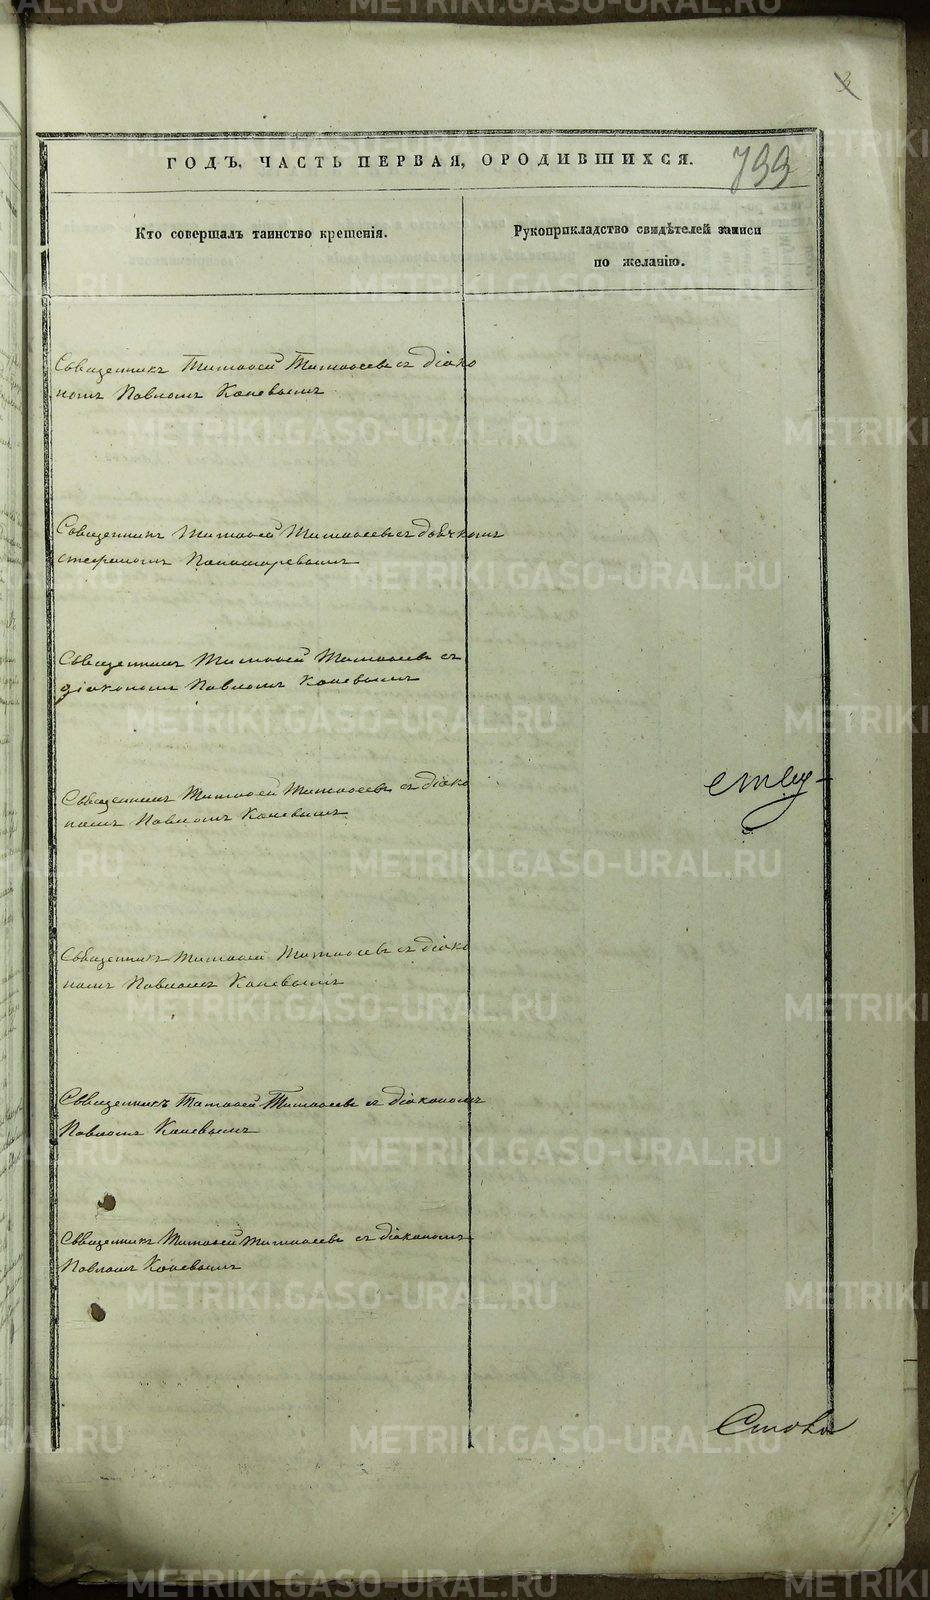 3
ГОДЪ, ЧАСТЬ ПЕРВАЯ, О РОДИВШИХСЯ.
799
Кто совершалъ таинство крещенія.
Рукоприкладство свидѣтелей записи
по желанію.
Священникъ Тимофей Тимофеевъ съ діако
номъ Павломъ Каневымъ
Священникъ Тимофей Тимофеевъ съ дьячкомъ
Стефаномъ Пономаревымъ
Священникъ Тимофей Тимофеевъ съ
діакономъ Павломъ Каневымъ
Священникъ Тимофей Тимофеевъ съ діако
номъ Павломъ Каневымъ
Священникъ Тимофей Тимофеевъ съ діако
номъ Павломъ Каневымъ
Священникъ Тимофей Тимофеевъ съ діакономъ
Павломъ Каневымъ
Священникъ Тимофей Тимофеевъ съ діакономъ
Павломъ Каневымъ
METRIKI.GASO-URAL.RU